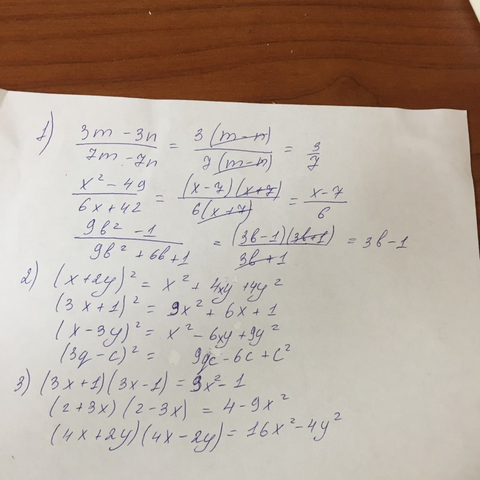 1) (3m - 3n)/(7m - 7n) = 3(m-n)/7(m-n) = 3/7
(x² - 49)/(6x + 42) = (x-7)(x+7)/6(x+7) = (x-7)/6
(9b² - 1)/(9b² + 6b + 1) = (3b-1)(3b+1)/(3b+1) = 3b - 1
2) (x+2y)² = x² + 4xy + 4y²
(3x+1)² = 9x² + 6x + 1
(x-3y)² = x² - 6xy + 9y²
(3g-c)² = 9gc - 6c + c²
3) (3x+1)(3x-1) = 9x² - 1
(2+3x)(2-3x) = 4 - 9x²
(4x+2y)(4x-2y) = 16x² - 4y²